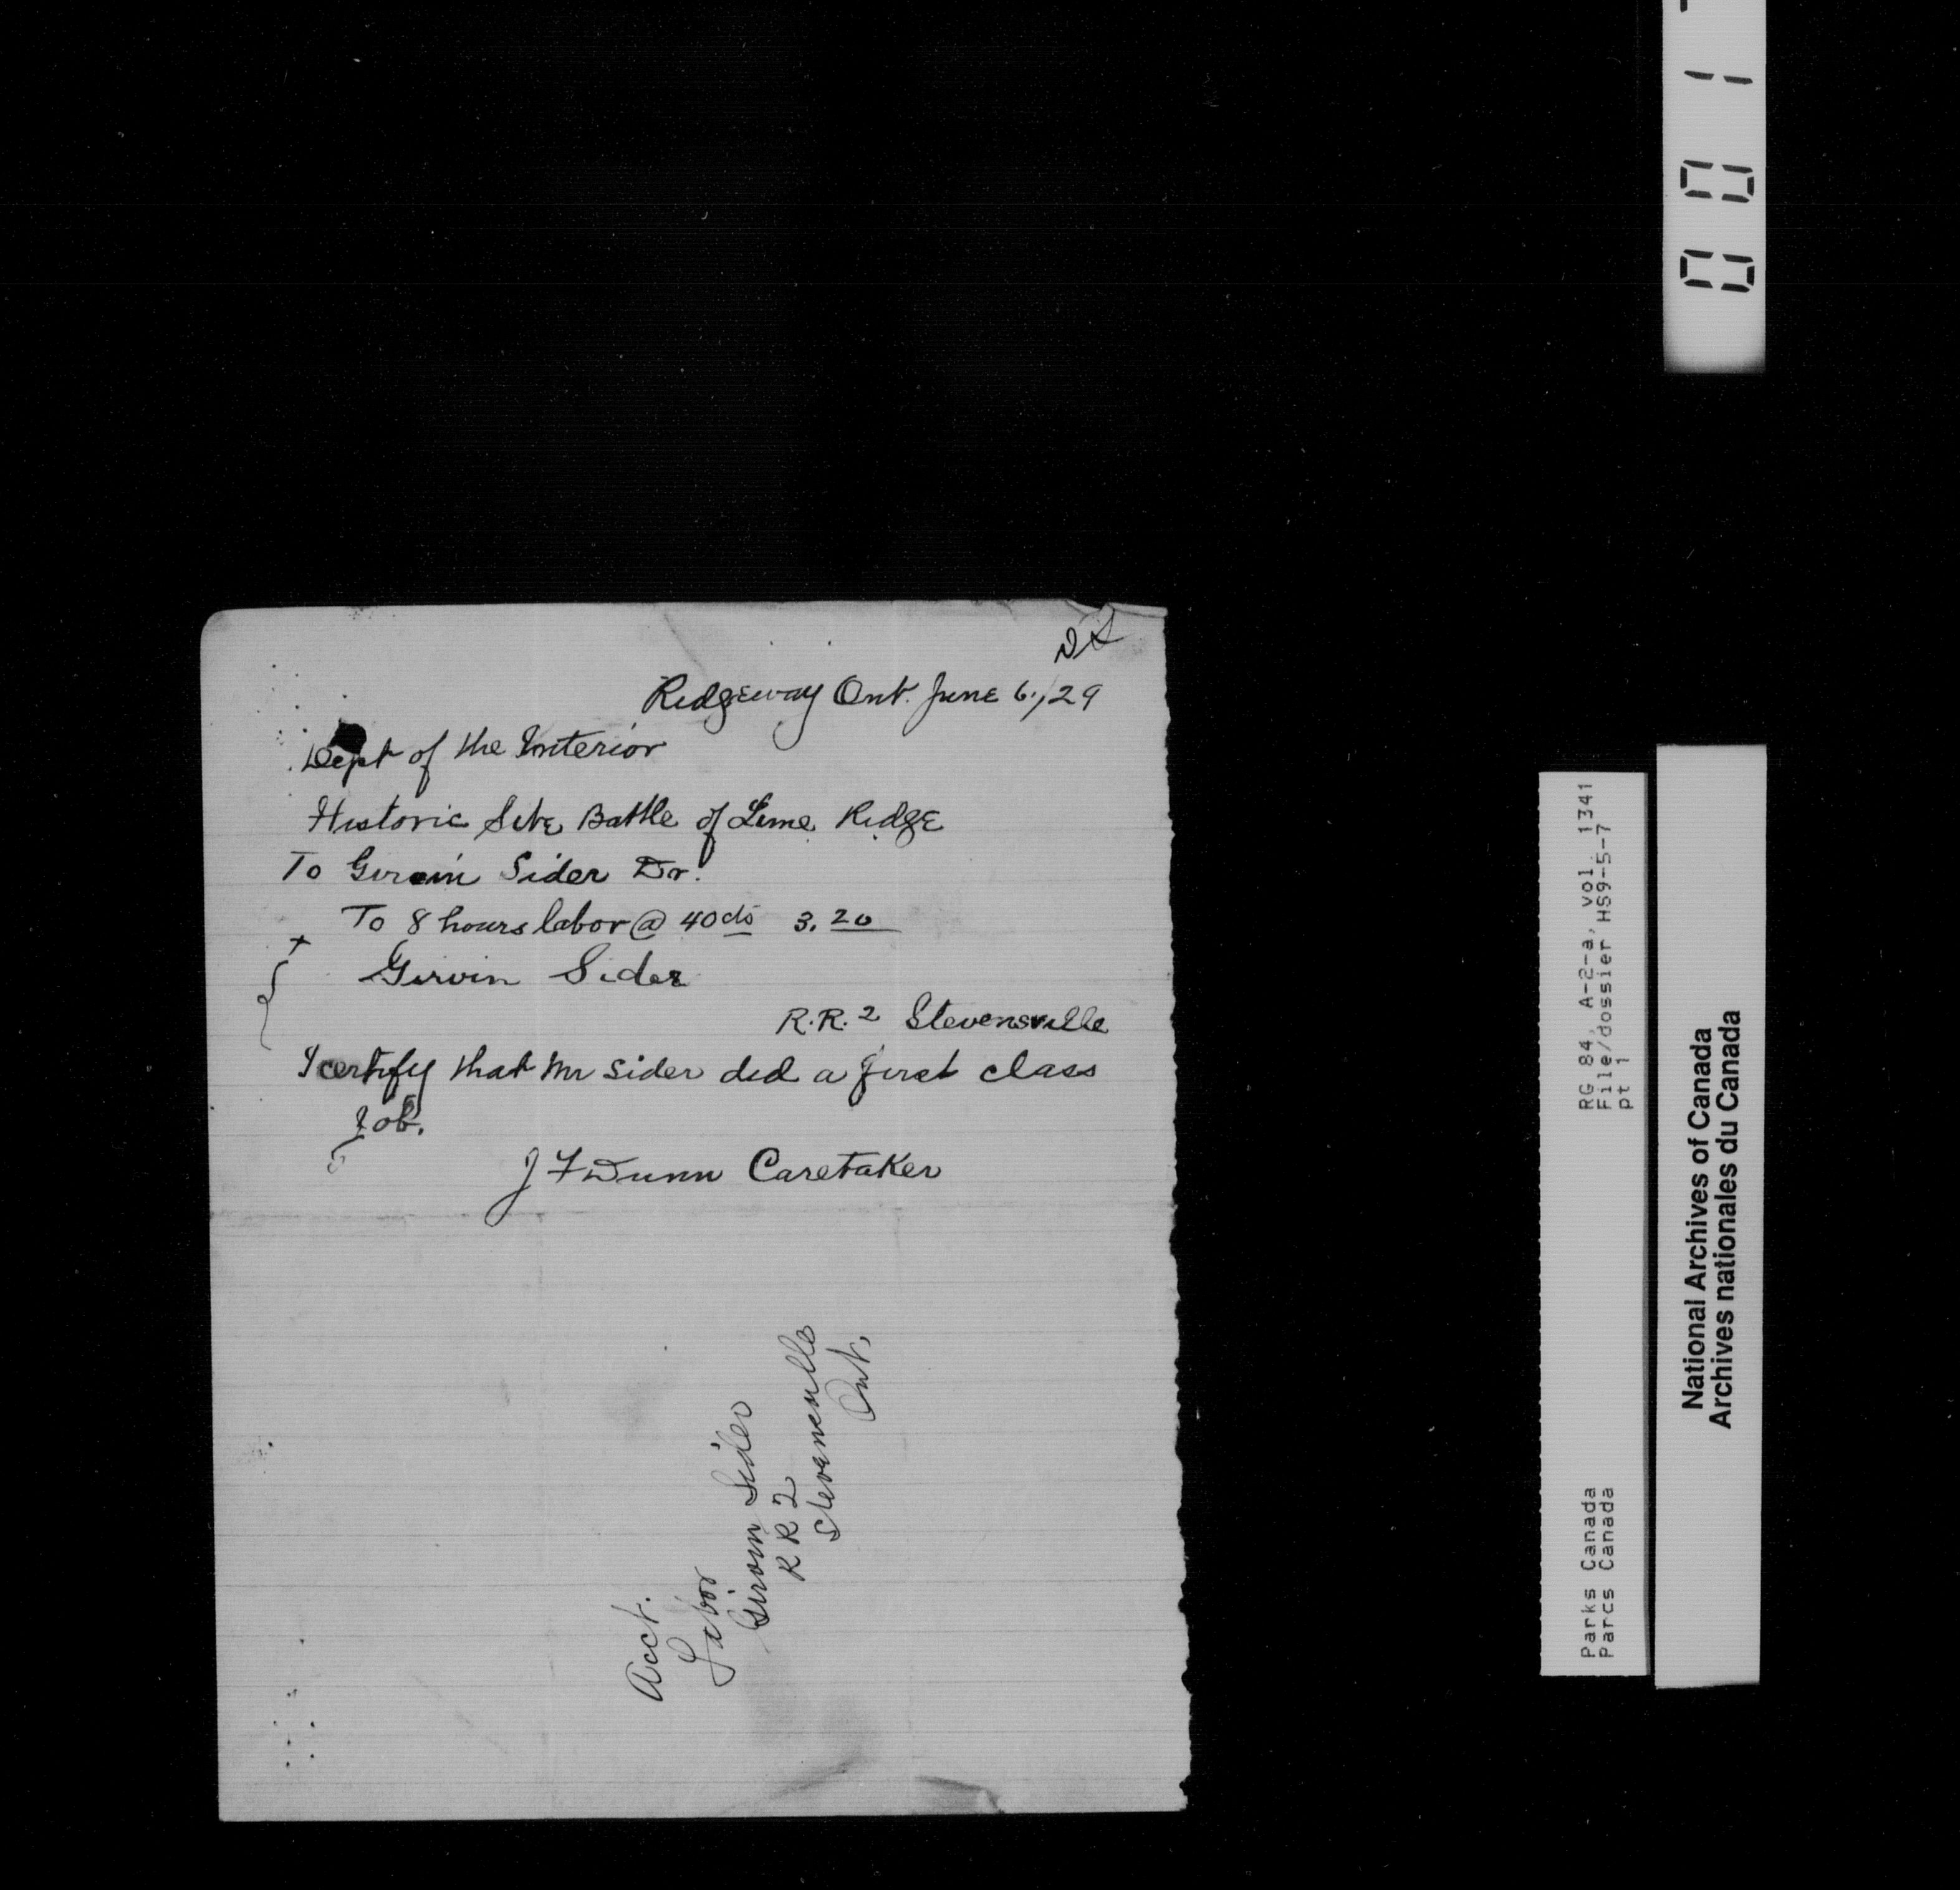 Ridgeway Ont. June 6./29
Dept of the Interior
Historic Site Battle of Lime Ridge
To Girvin Sider Dr.
To 8 hours labor @ 40cts 3.20
+
Girvin Sider
R.R. 2 Stevensville
I certify that Mr Sider did a first class
Job.
J F Dunn Caretaker
Acct.
Labor
Girvin Sider
R R 2
Stevensville
Ont.
RG 84, A-2-a, vol. 1341
File/dossier HS9-5-7
pt 1
Parks Canada
Parcs Canada
National Archives of Canada
Archives nationales du Canada